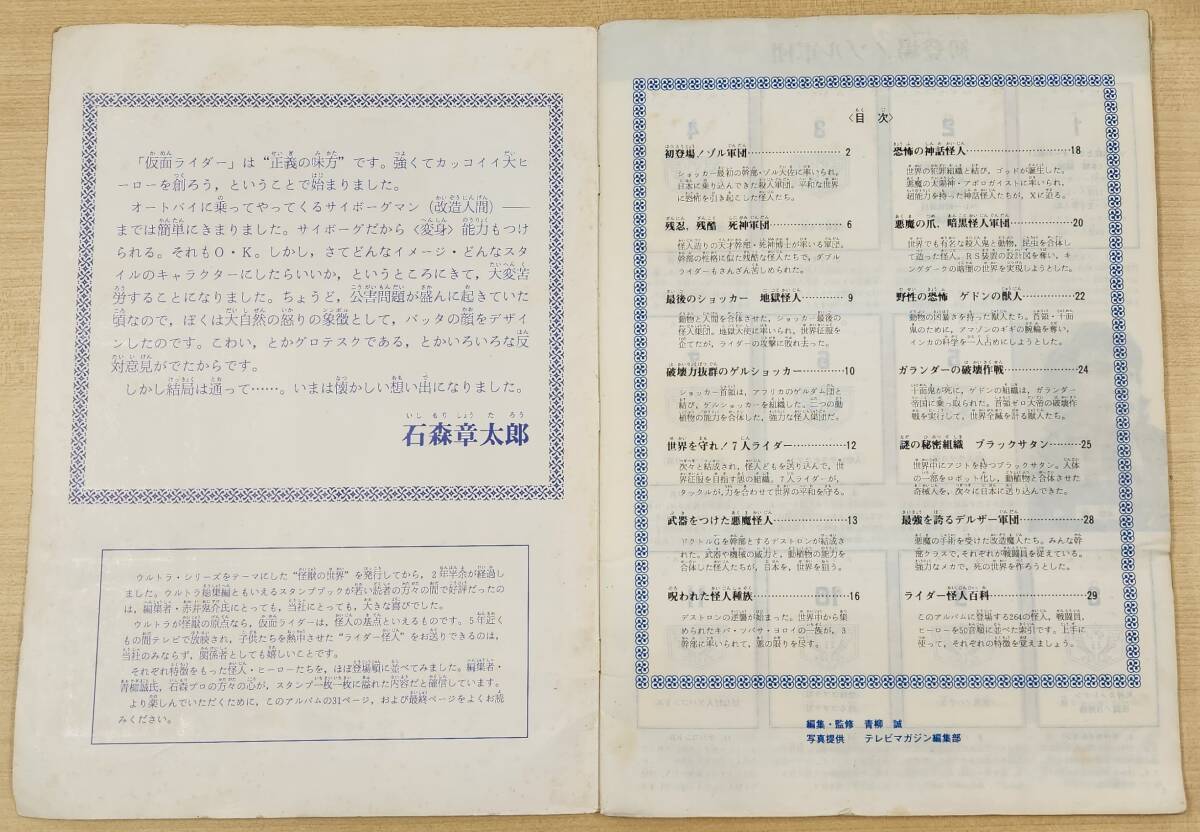 「仮面ライダー」は“正義の味方”です。強くてカッコイイ大ヒ
ーローを創ろう，ということで始まりました。
オートバイに乗ってやってくるサイボーグマン（改造人間）――
までは簡単にきまりました。サイボーグだから〈変身〉能力もつけ
られる。それもO・K。しかし，さてどんなイメージ・どんなスタ
イルのキャラクターにしたらいいか，というところにきて，大変苦
労することになりました。ちょうど，公害問題が盛んに起きていた
頃なので，ぼくは大自然の怒りの象徴として，バッタの顔をデザイ
ンしたのです。こわい，とかグロテスクである，とかいろいろな反
対意見がでたからです。
しかし結局は通って……。いまは懐かしい想い出になりました。
いしもりしょうたろう
石森章太郎
ウルトラ・シリーズをテーマにした“怪獣の世界”を発行してから，2年半余が経過し
ました。ウルトラ総集編ともいえるスタンプブックが若い読者の方々の間で好評だったの
は，編集者・赤井鬼介氏にとっても，当社にとっても，大きな喜びでした。
ウルトラが怪獣の原点なら，仮面ライダーは，怪人の基点といえるものです。5年近く
もの間テレビで放映され，子供たちを熱中させた“ライダー怪人”をお送りできるのは，
当社のみならず，関係者としても嬉しいことです。
それぞれ特徴をもった怪人・ヒーローたちを，ほぼ登場順に並べてみました。編集者・
青柳誠氏，石森プロの方々の心が，スタンプ一枚一枚に溢れた内容だと確信しています。
より楽しんでいただくために，このアルバムの31ページ，および最終ページをよくお読
みください。
〈目次〉
初登場！ゾル軍団……………2
ショッカー最初の幹部・ゾル大佐に率いられ，
日本に乗り込んできた殺人軍団。平和な世界
に恐怖を引き起こした怪人たち。
残忍，残酷 死神軍団……………6
怪人造りの天才幹部・死神博士が率いる軍団。
幹部の性格に似た残酷な怪人たちで，ダブル
ライダーもさんざん苦しめられた。
最後のショッカー 地獄怪人……………9
動物と人間を合体させた，ショッカー最後の
怪人集団。地獄大使に率いられ，世界征服を
企てたが，ライダーの攻撃に敗れ去った。
破壊力抜群のゲルショッカー……………10
ショッカー首領は，アフリカのゲルダム団と
結び，ゲルショッカーを組織した。二つの動
植物の能力を合体した，強力な怪人集団だ。
世界を守れ！7人ライダー……………12
次々と結成され，怪人どもを送り込んで，世
界征服を目指す悪の組織。7人ライダーが，
タックルが，力を合わせて世界の平和を守る。
武器をつけた悪魔怪人……………13
ドクトルGを幹部とするデストロンが結成さ
れた。武器や機械の威力と，動植物の能力を
合体した怪人たちが，日本を，世界を狙う。
呪われた怪人種族……………16
デストロンの逆襲が始まった。世界中から集
められたキバ・ツバサ・ヨロイの一族が，3
幹部に率いられて，悪の限りを尽す。
恐怖の神話怪人……………18
世界の犯罪組織と結び，ゴッドが誕生した。
悪魔の太陽神・アポロガイストに率いられ，
超能力を持った神話怪人たちが，Xに迫る。
悪魔の爪，暗黒怪人軍団……………20
世界でも有名な殺人鬼と動物，昆虫を合体し
て造った怪人。RS装置の設計図を奪い，キ
ングダークの暗闇の世界を実現しようとした。
野性の恐怖 ゲドンの獣人……………22
動物の凶暴さを持った獣人たち。首領・十面
鬼のために，アマゾンのギギの腕輪を奪い，
インカの科学を一人占めにしようとした。
ガランダーの破壊作戦……………24
十面鬼が死に，ゲドンの組織は，ガランダー
帝国に乗っ取られた。首領ゼロ大帝の破壊作
戦を実行して，世界全滅を計る獣人たち。
謎の秘密組織 ブラックサタン……………25
世界中にアジトを持つブラックサタン。人体
の一部をロボット化し，動植物と合体させた
奇械人を，次々に日本に送り込んできた。
最強を誇るデルザー軍団……………28
悪魔の手術を受けた改造魔人たち。みんな幹
部クラスで，それぞれが戦闘員を従えている。
強力なメカで，死の世界を作ろうとした。
ライダー怪人百科……………29
このアルバムに登場する264の怪人，戦闘員，
ヒーローを50音順に並べた索引です。上手に
使って，それぞれの特徴を覚えましょう。
編集・監修 青柳 誠
写真提供 テレビマガジン編集部